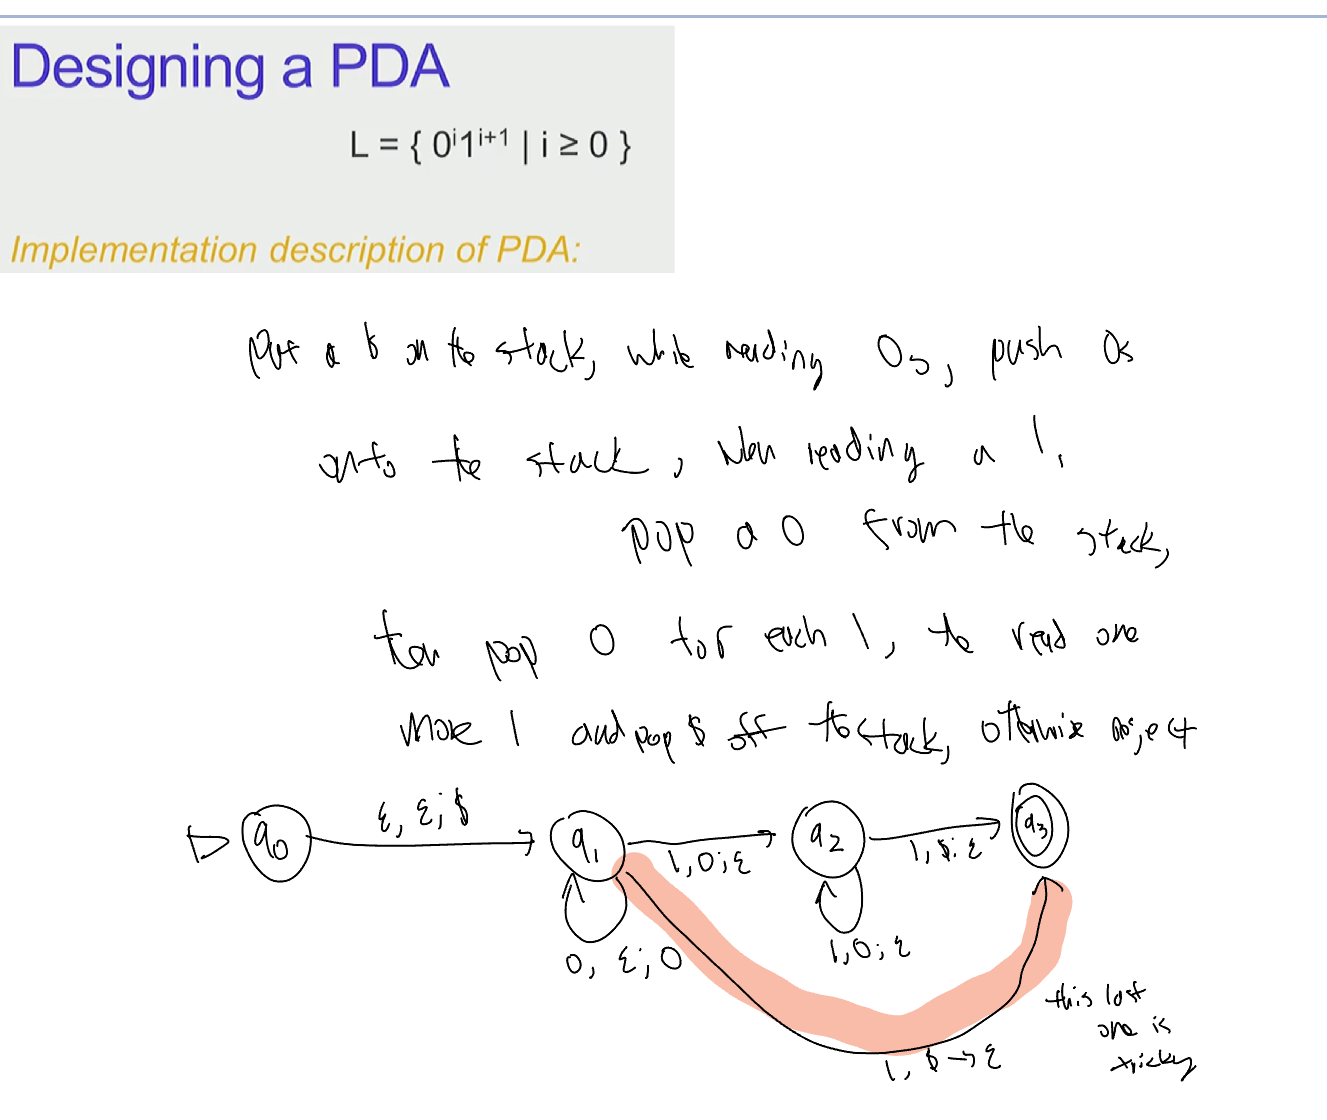 Designing a PDA
L = { 0ⁱ1ⁱ⁺¹ | i ≥ 0 }
Implementation description of PDA:
Put a $ on the stack, while reading 0s, push 0s
onto the stack, when reading a 1,
pop a 0 from the stack,
then pop 0 for each 1, the read one
more 1 and pop $ off the stack, otherwise reject
ε, ε; $
q0 q1 q2 q3
1, 0; ε 1, $; ε
0, ε; 0 1, 0; ε
this last
one is
tricky
1, $ → ε